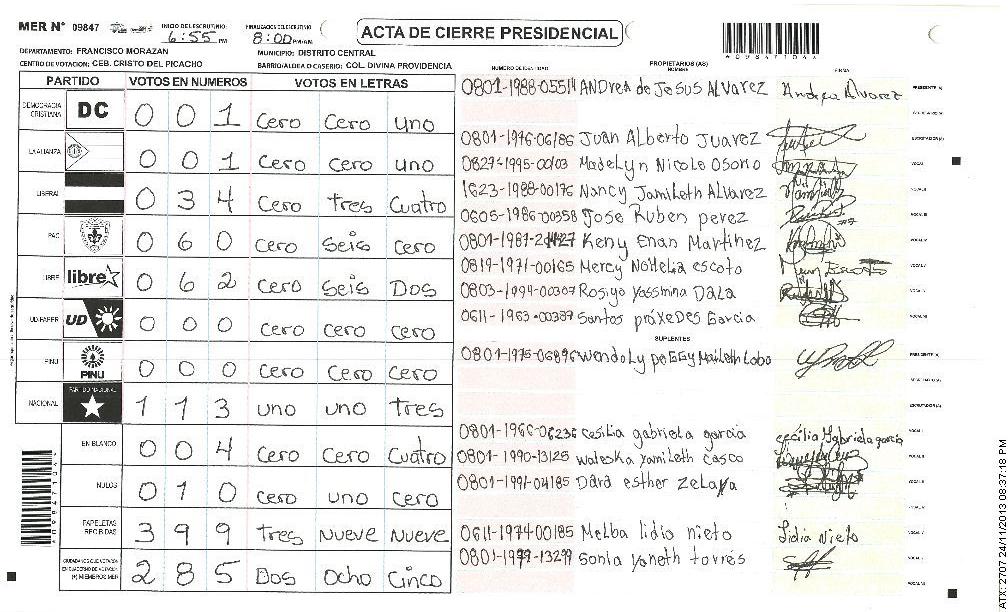 MER N° 09847 INICIO DEL ESCRUTINIO 6:55 PM FINALIZACION DEL ESCRUTINIO 8:00 PM/AM ACTA DE CIERRE PRESIDENCIAL
DEPARTAMENTO: FRANCISCO MORAZAN MUNICIPIO: DISTRITO CENTRAL
CENTRO DE VOTACION: CEB. CRISTO DEL PICACHO BARRIO/ALDEA O CASERIO: COL. DIVINA PROVIDENCIA
PARTIDO VOTOS EN NUMEROS VOTOS EN LETRAS
DEMOCRACIA CRISTIANA DC 0 0 1 cero cero uno
LA ALIANZA 0 0 1 cero cero uno
LIBERAL 0 3 4 cero tres cuatro
PAC 0 6 0 cero seis cero
LIBRE libre 0 6 2 cero seis Dos
UD-FAPER UD 0 0 0 cero cero cero
PINU PINU 0 0 0 cero cero cero
NACIONAL PARTIDO NACIONAL 1 1 3 uno uno tres
EN BLANCO 0 0 4 cero cero cuatro
NULOS 0 1 0 cero uno cero
PAPELETAS RECIBIDAS 3 9 9 tres nueve nueve
CIUDADANOS QUE VOTARON EN CUADERNO DE VOTACION (+) MIEMBROS MER 2 8 5 Dos ocho cinco
NUMERO DE IDENTIDAD PROPIETARIOS (AS) NOMBRE FIRMA
0801-1988-05514 ANDrea de Jesus Alvarez Andrea Alvarez PRESIDENTE (A)
SECRETARIO (A)
0801-1976-06186 Juan Alberto Juarez ESCRUTADOR (A)
0827-1995-00103 Madelyn Nicole Osorio VOCAL I
1623-1988-00176 Nancy Jamileth Alvarez VOCAL II
0605-1986-00358 Jose Ruben perez VOCAL III
Keny Enan Martinez VOCAL IV
0819-1971-00165 Mercy escoto VOCAL V
0803-1994-00307 Yassmina VOCAL VI
0611-1963-00387 Santos práxedes Garcia VOCAL VII
SUPLENTES
0801-1975-06896 Wendoly peggy Maileth Lobo PRESIDENTE (A)
SECRETARIO (A)
ESCRUTADOR (A)
0801-1966-06236 Cesilia gabriela garcia cecilia Gabriela garcia VOCAL I
0801-1990-13125 Waleska Yamileth casco VOCAL II
0801-1991-04185 Dara esther zelaya VOCAL III
VOCAL IV
0611-1974-00185 Melba lidio nieto Lidia Nieto VOCAL V
0801-1979-13279 Sonia yaneth torres VOCAL VI
VOCAL VII
ATX: 2707 24/11/2013 08:37:18 PM